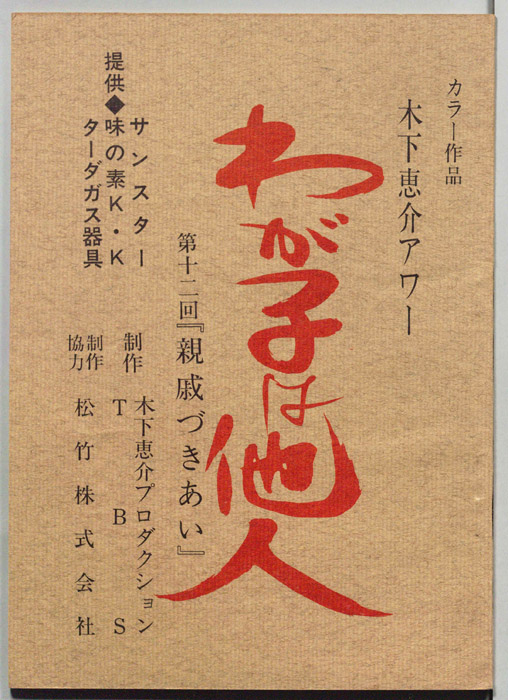 カラー作品
木下恵介アワー
わが子は他人
第十二回『親戚づきあい』
提供◆
サンスター
味の素K・K
ターダガス器具
制作
木下恵介プロダクション
TBS
制作協力
松竹株式会社